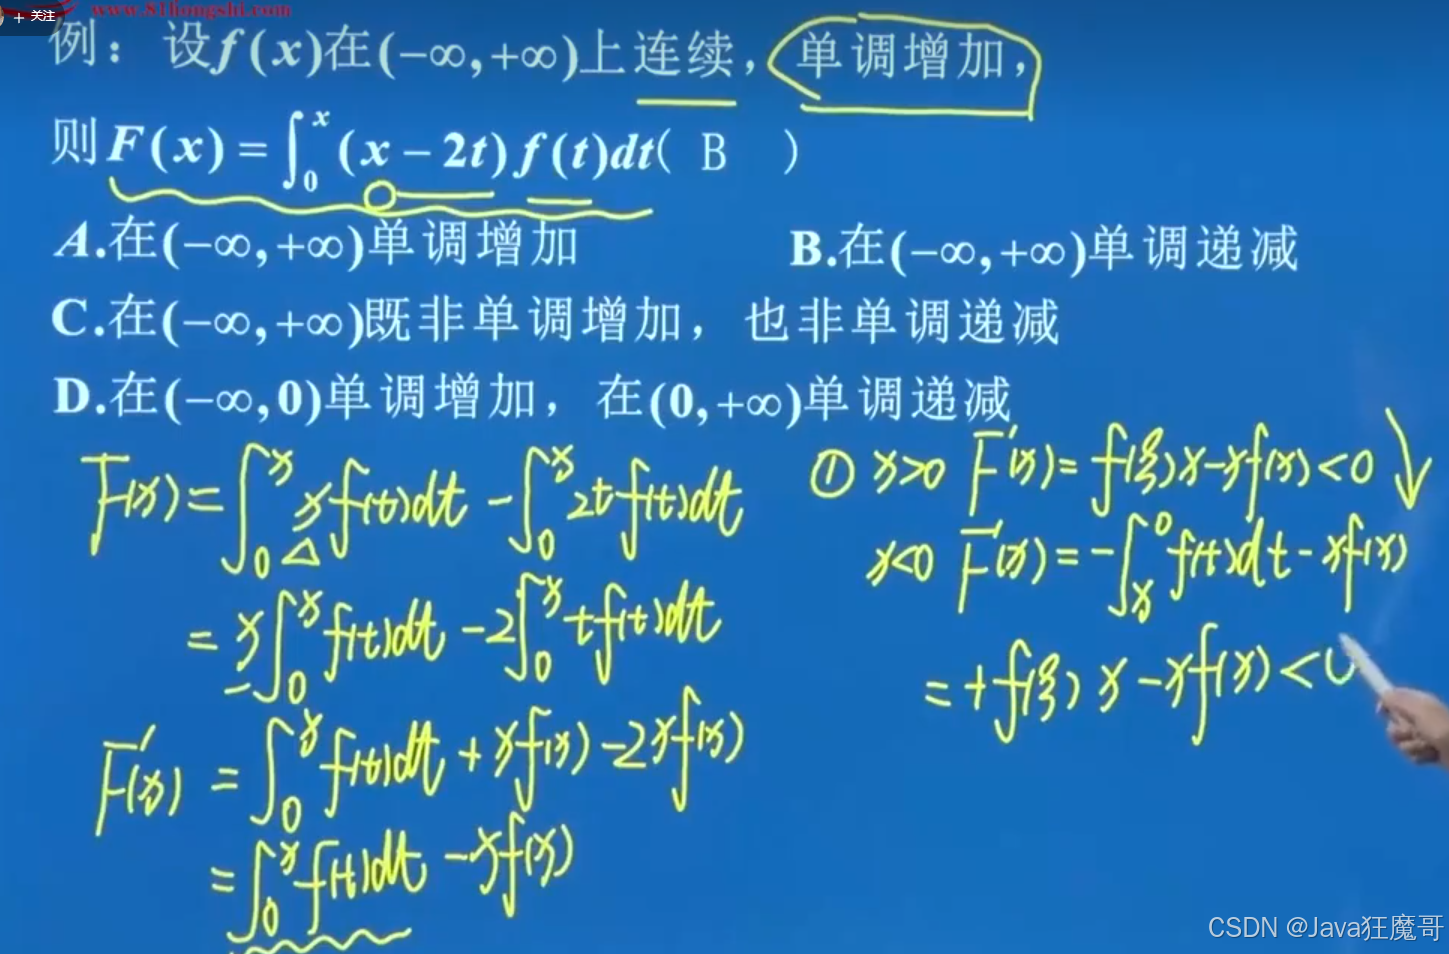 www.81hongshi.com
+ 关注
例：设f(x)在(−∞,+∞)上连续，单调增加，
则F(x)=∫₀ˣ(x−2t)f(t)dt( B )
A.在(−∞,+∞)单调增加 B.在(−∞,+∞)单调递减
C.在(−∞,+∞)既非单调增加，也非单调递减
D.在(−∞,0)单调增加，在(0,+∞)单调递减
F(x)=∫₀ˣxf(t)dt−∫₀ˣ2tf(t)dt
=x∫₀ˣf(t)dt−2∫₀ˣtf(t)dt
F'(x)=∫₀ˣf(t)dt+xf(x)−2xf(x)
=∫₀ˣf(t)dt−xf(x)
① x>0 F'(x)=f(ξ)x−xf(x)<0 ↓
x<0 F'(x)=−∫ₓ⁰f(t)dt−xf(x)
=+f(ξ)x−xf(x)<0
CSDN @Java狂魔哥